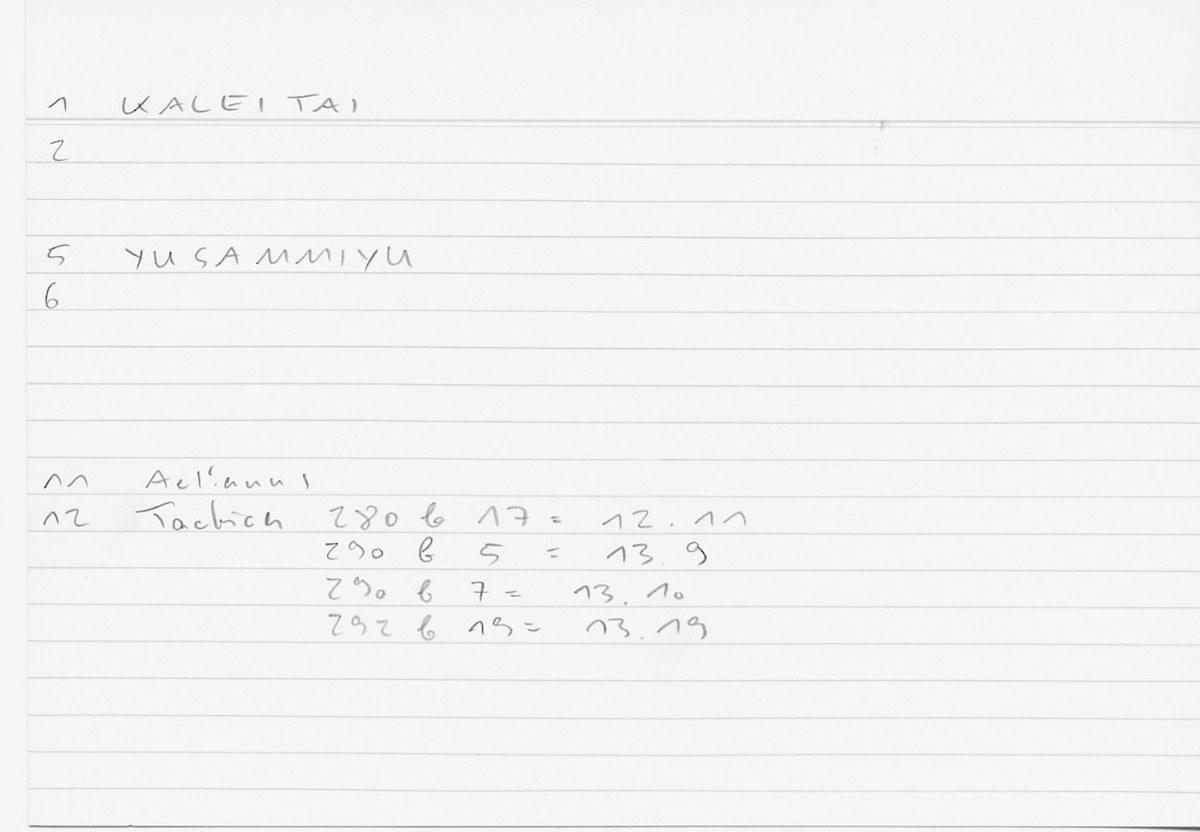 1 KALEITAI
2
5 YUSAMMIYU
6
11
12 280 b 17 = 12.11
290 b 5 = 13.9
290 b 7 = 13.10
292 b 19 = 13.19